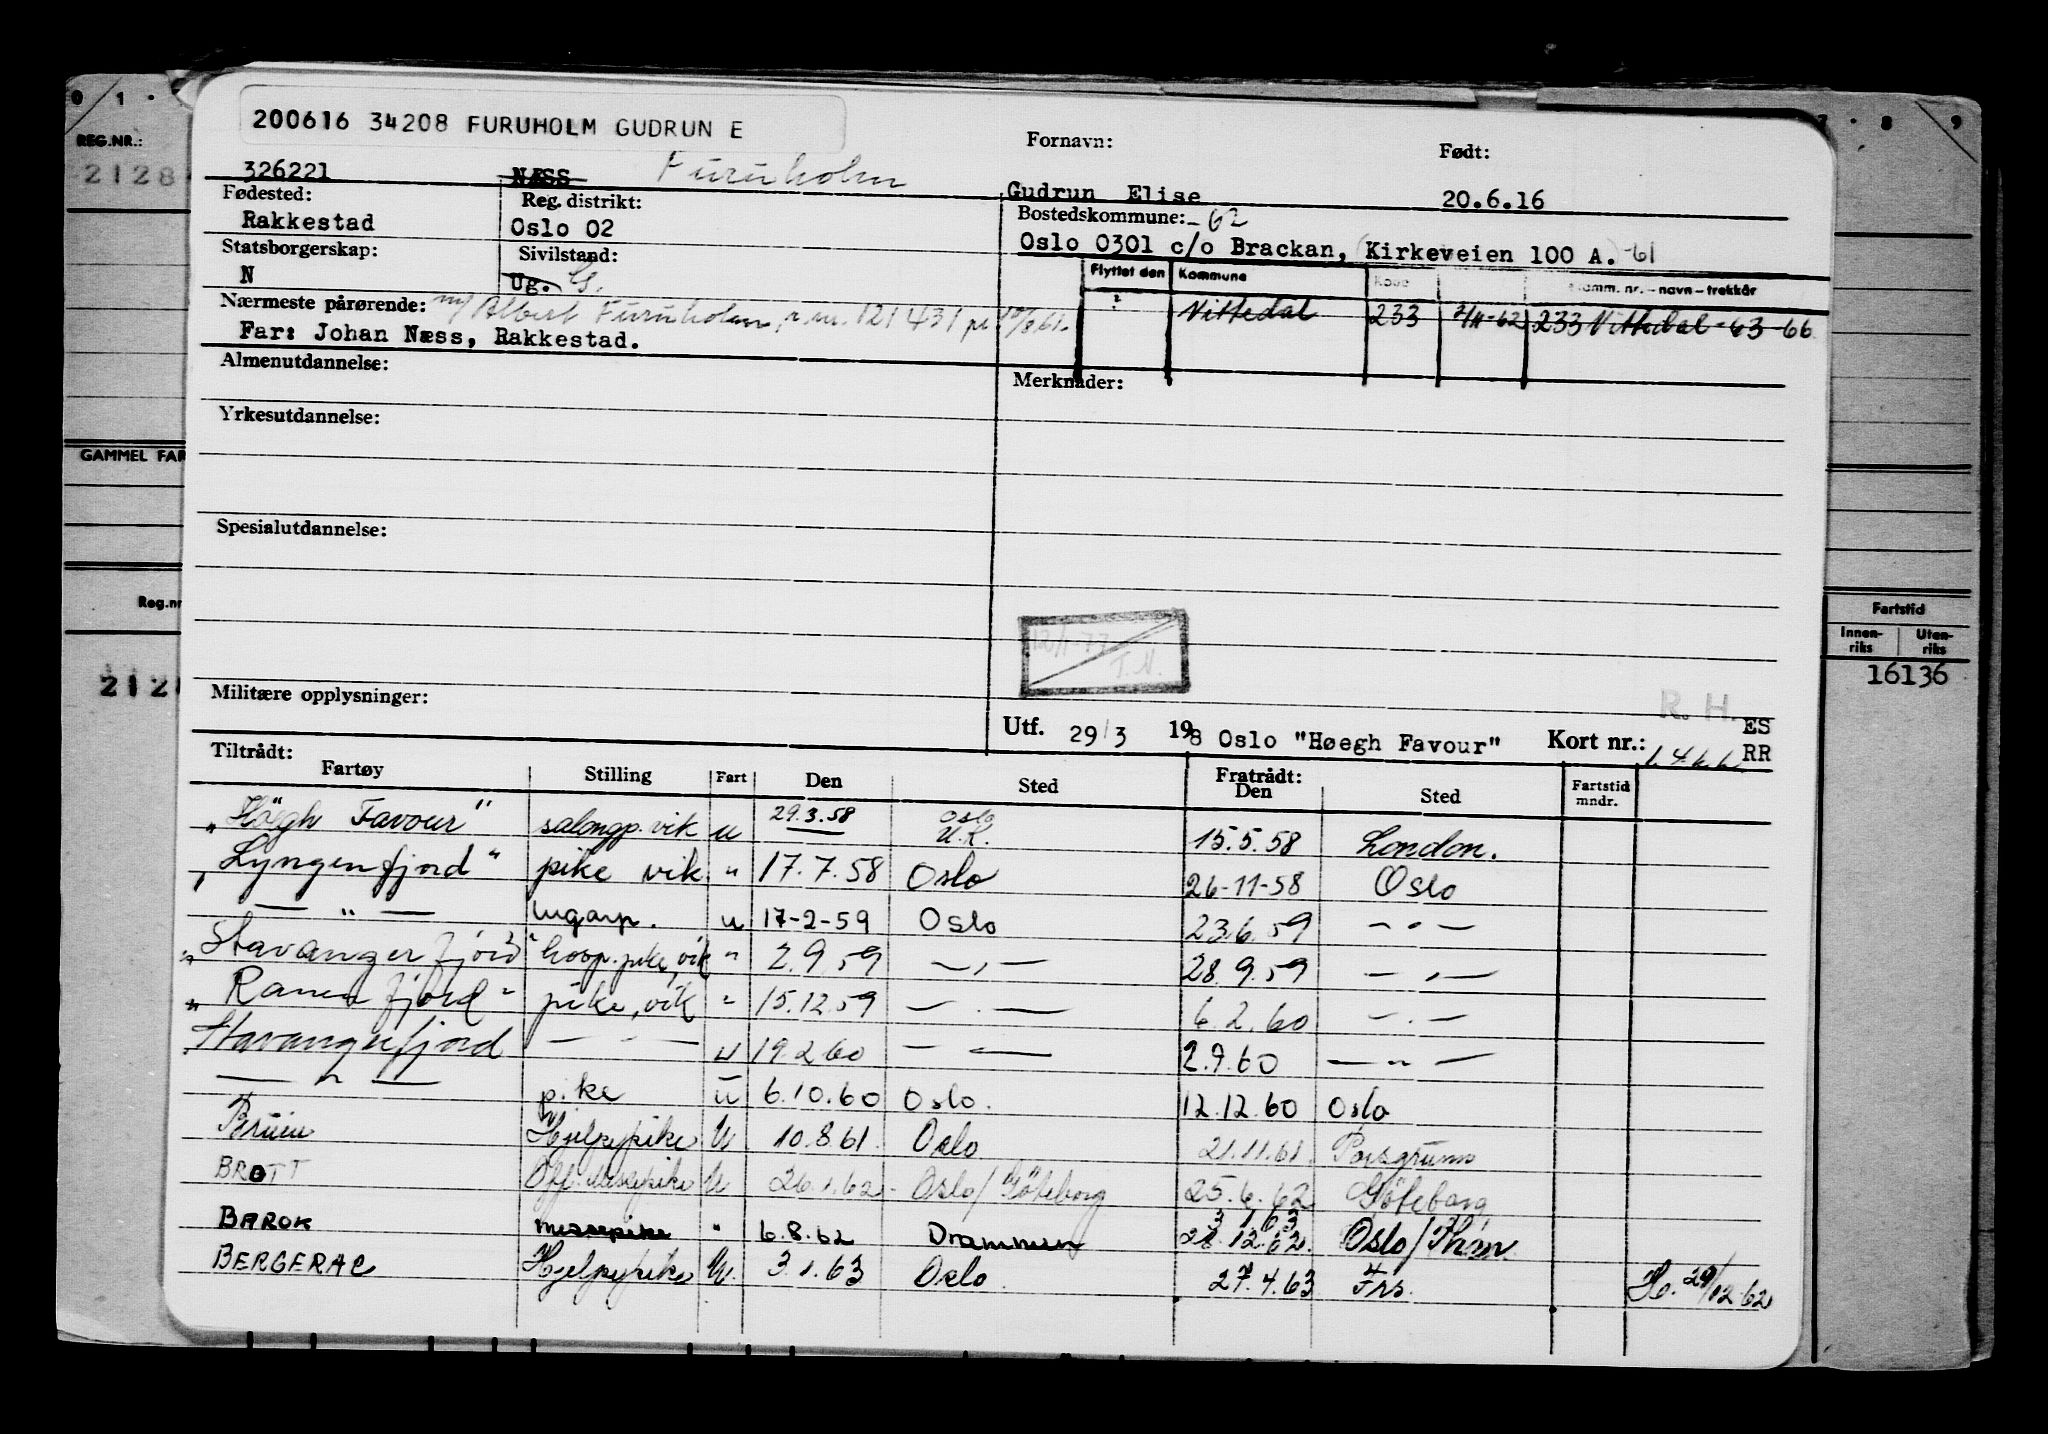 0 1 · 7 · 8 9
200616 34208 FURUHOLM GUDRUN E
REG.NR.:
2128
Fornavn: Født:
326221 NÆSS Furuholm Gudrun Elise 20.6.16
Fødested: Reg. distrikt: Bostedskommune: -62
Rakkestad Oslo 02 Oslo 0301 c/o Brackan, (Kirkeveien 100 A.) -61
Statsborgerskap: Sivilstand: Flyttet den Kommune Kode Komm. nr. – navn – trekkår
N Ug. G.
Nittedal 233 2/11-62 233 Nittedal -63-66
Nærmeste pårørende: m/ Albert Furuholm, r.nr. 121431 pr 10/8 61.
Far: Johan Næss, Rakkestad.
Almenutdannelse: Merknader:
Yrkesutdannelse:
GAMMEL FAR
Spesialutdannelse:
Reg.nr Fartstid
Innen-riks Uten-riks
212 16136
12/1-77
T.N.
Militære opplysninger:
R. H.
Utf. 29/3 1958 Oslo "Høegh Favour" Kort nr.: 1.4.6.6 ES RR
Tiltrådt: Fratrådt:
Fartøy Stilling Fart Den Sted Den Sted Fartstid mndr.
„Högh Favour" salongp. vik u 29.3.58 Oslo U.K. 15.5.58 London.
„Lyngenfjord" pike vik " 17.7.58 Oslo 26-11-58 Oslo
— " — lugarp. u 17-2-59 Oslo 23.6.59 — " —
„Stavangerfjord" hosp. pike, vik " 2.9.59 — „ — 28.9.59 — „ —
„Ranenfjord" pike, vik " 15.12.59 — . — 6.2.60 — . —
„Stavangerfjord — . — u 19.2.60 — . — 2.9.60 — " —
— " — pike u 6.10.60 Oslo. 12.12.60 Oslo
Bruin Hjelpepike U 10.8.61. Oslo 21.11.61. Porsgrunn
BROTT Off. messepike U 26.1.62. Oslo/Göteborg 25.6.62 Göteborg
BAROK messepike " 6.8.62 Drammen 28.12.62. 3.1.63 Oslo/Thm
BERGERAC Hjelpepike U. 3.1.63 Oslo. 27.4.63 Frs. H. 29/12-62